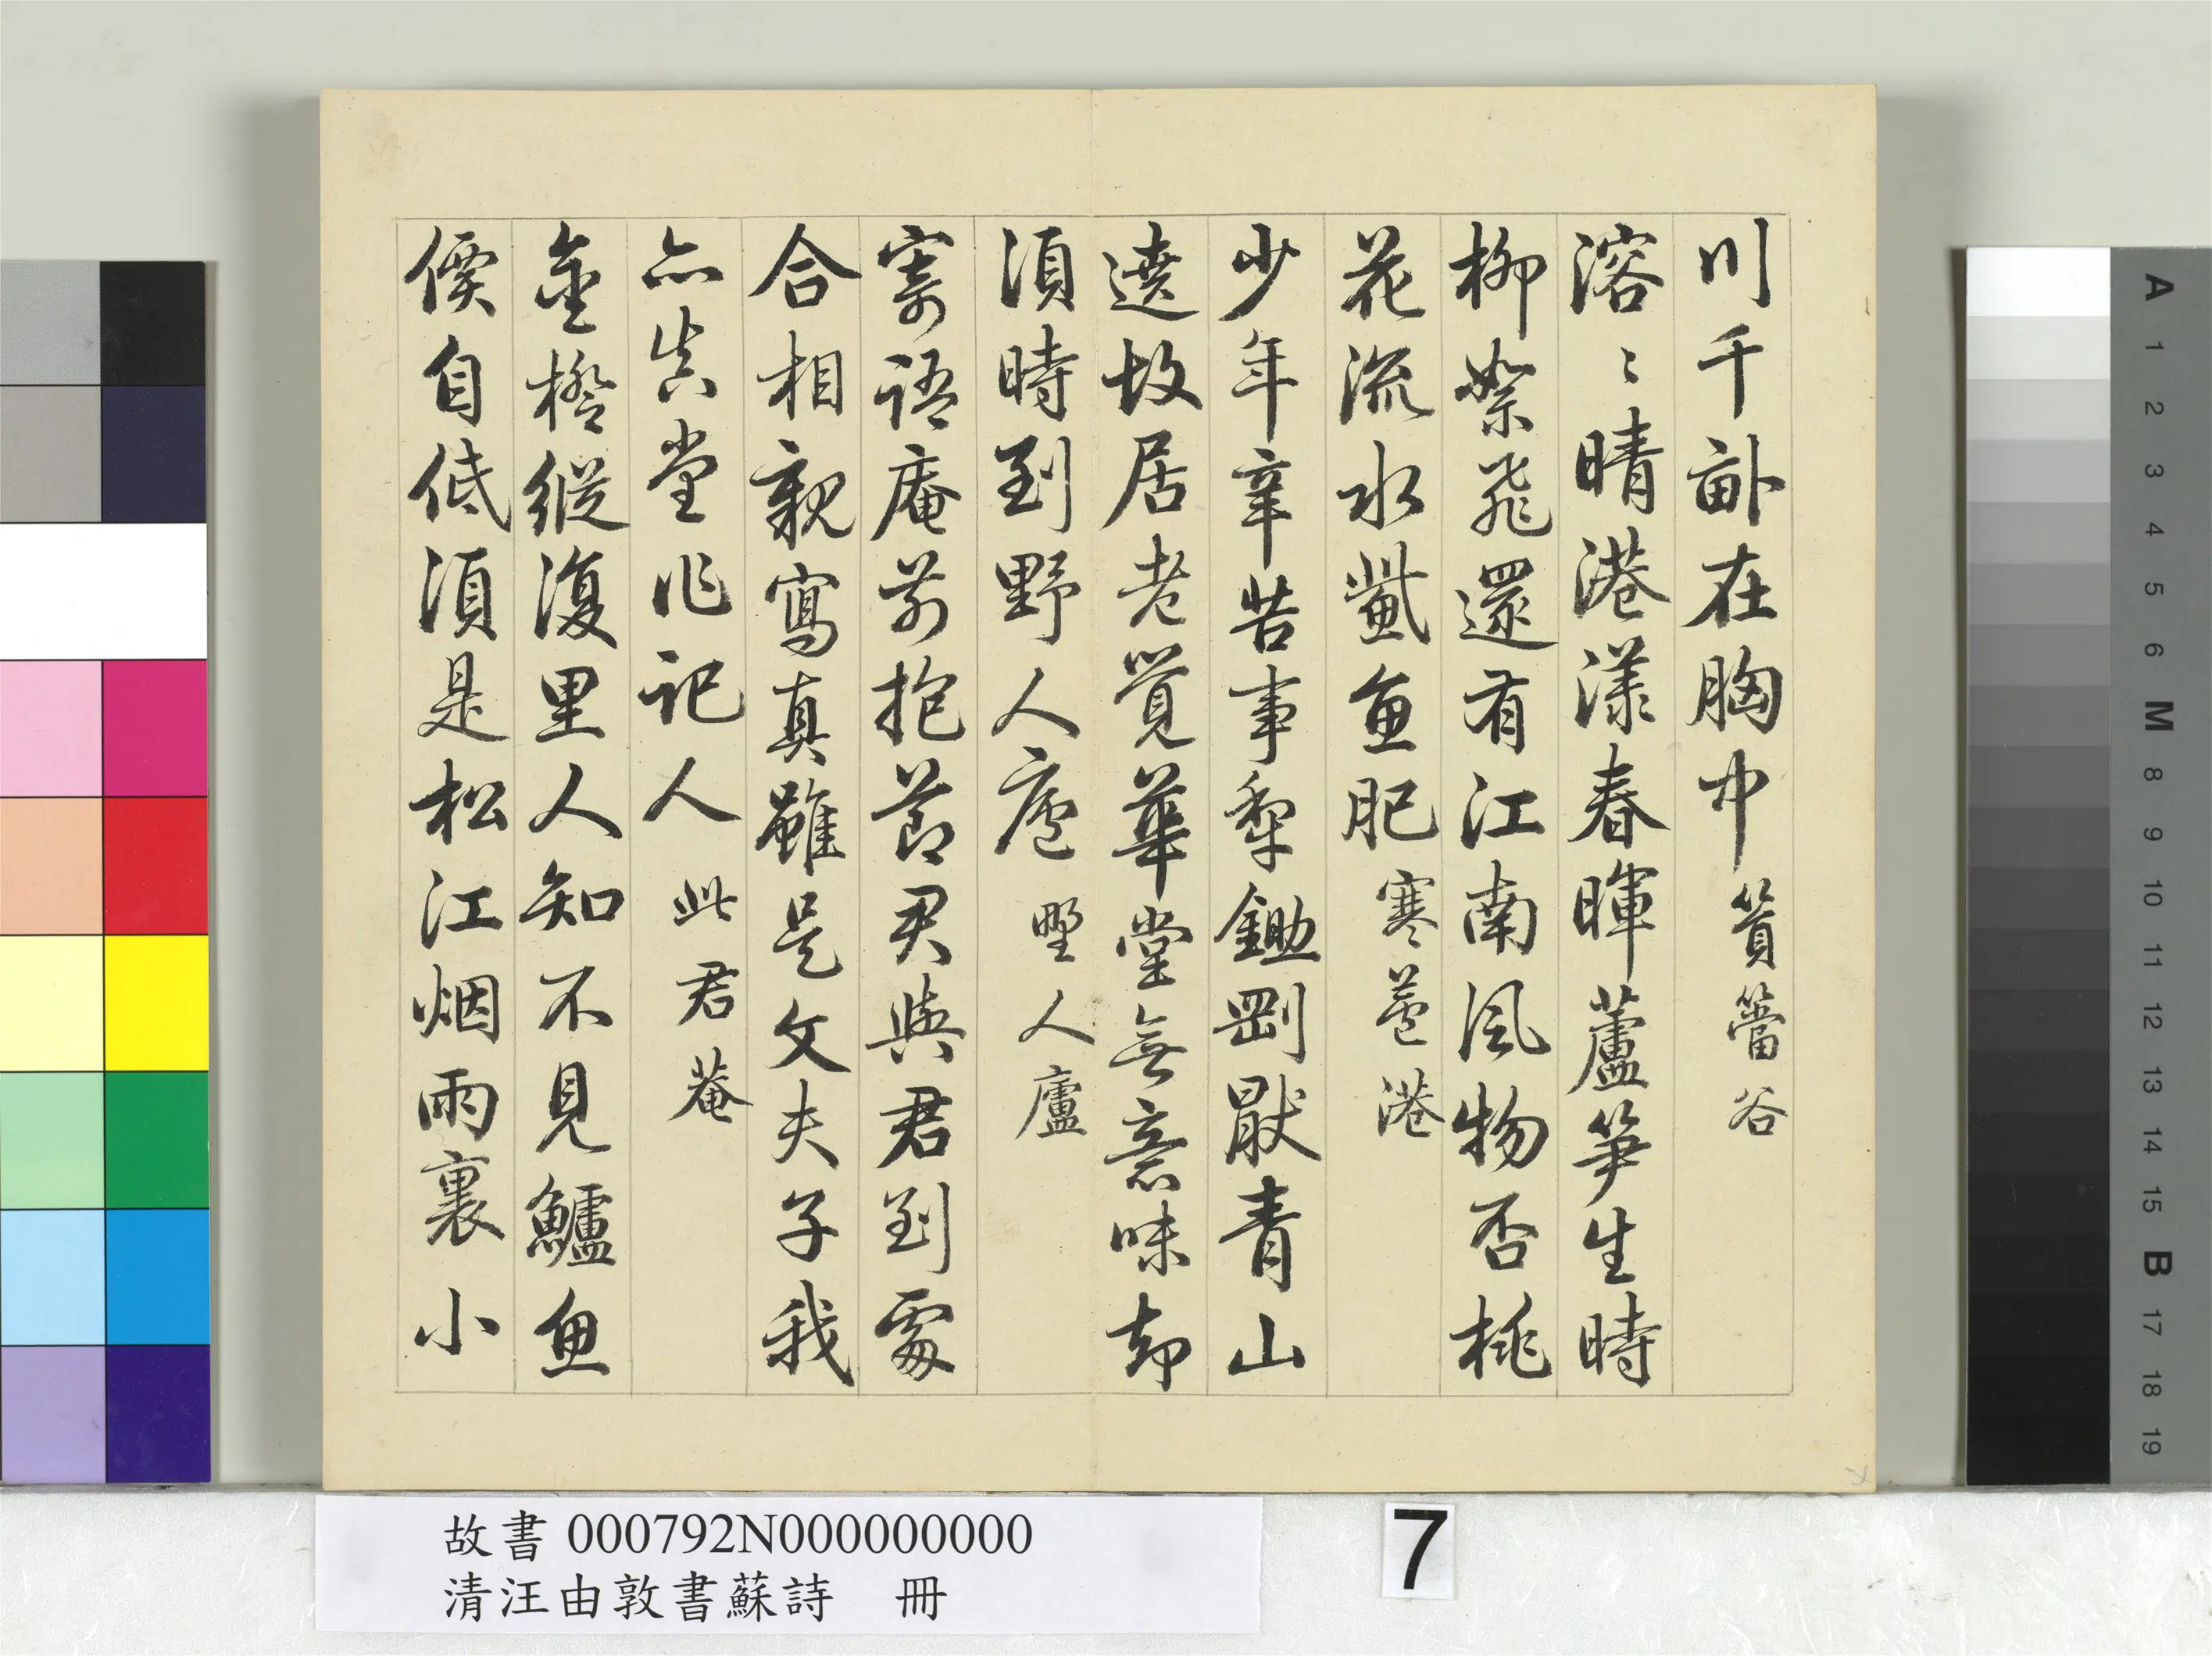 川千畝在胸中 篔簹谷
溶〻晴港漾春暉蘆笋生時
柳絮飛還有江南風物否桃
花流水鮆魚肥 寒蘆港
少年辛苦事犁鋤剛厭青山
遶故居老覺華堂無意味却
須時到野人廬 野人廬
寄語庵前抱節君與君到處
合相親寫真雖是文夫子我
亦真堂作記人 此君菴
金橙縱復里人知不見鱸魚
價自低須是松江烟雨裏小
故書 000792N000000000
清汪由敦書蘇詩 冊
7
A 1 2 3 4 5 6 M 8 9 10 11 12 13 14 15 B 17 18 19